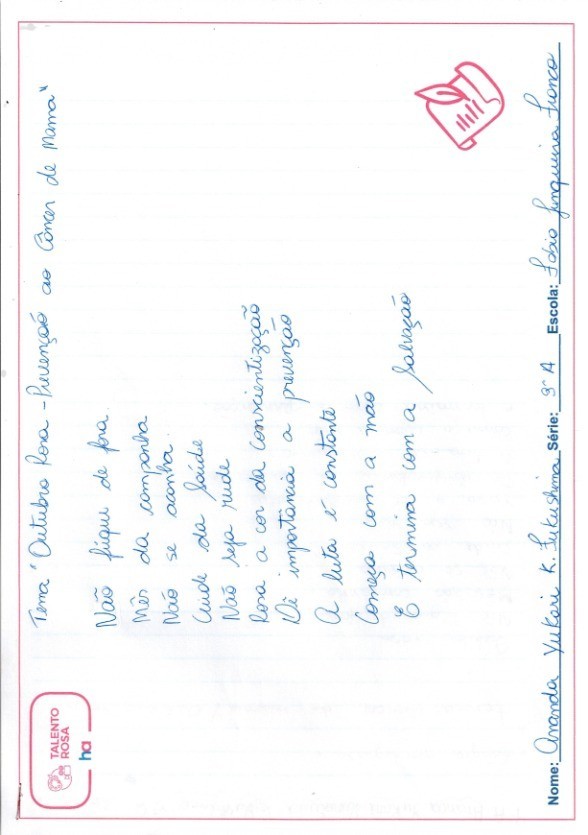 TALENTO
ROSA
ha
Tema "Outubro Rosa - Prevenção ao Câncer de Mama"
Não fique de fora.
Mês da campanha
Não se acanha.
Cuide da saúde
Não seja rude
Rosa a cor da conscientização
Dê importancia a prevenção
A luta é constante
Começa com a mão
E termina com a salvação
Nome: Amanda Yukari K. Fukushima Série: 3ª A Escola: Fabio Junqueira Franco